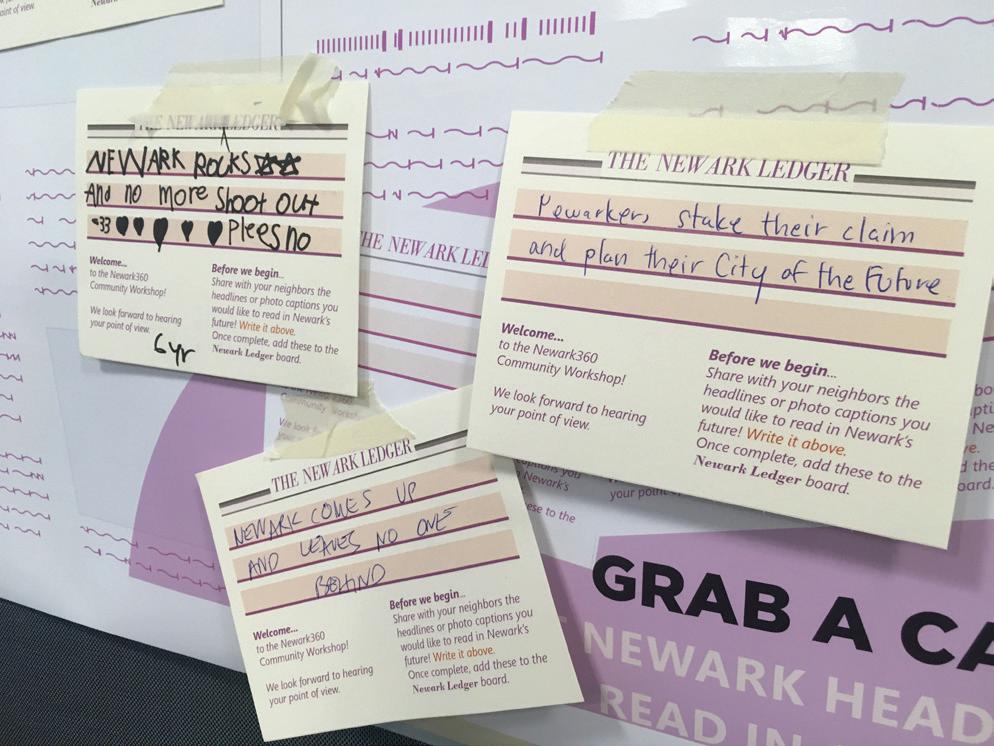 oint of view.
THE NEWARK LEDGER
NEWARK ROCKS
And no more shoot out
<33 Plees no
Welcome...
to the Newark360
Community Workshop!
We look forward to hearing
your point of view.
6yr
Before we begin...
Share with your neighbors the
headlines or photo captions you
would like to read in Newark's
future! Write it above.
Once complete, add these to the
Newark Ledger board.
THE NEWARK LEDGER
Newarkers stake their claim
and plan their City of the Future
Welcome...
to the Newark360
Community Workshop!
We look forward to hearing
your point of view.
Before we begin...
Share with your neighbors the
headlines or photo captions you
would like to read in Newark's
future! Write it above.
Once complete, add these to the
Newark Ledger board.
THE NEWARK LEDGER
NEWARK COMES UP
AND LEAVES NO ONE
BEHIND
Welcome...
to the Newark360
Community Workshop!
We look forward to hearing
your point of view.
Before we begin...
Share with your neighbors the
headlines or photo captions you
would like to read in Newark's
future! Write it above.
Once complete, add these to the
Newark Ledger board.
THE NEWARK LED
GRAB A CA
NEWARK HEAD
READ IN